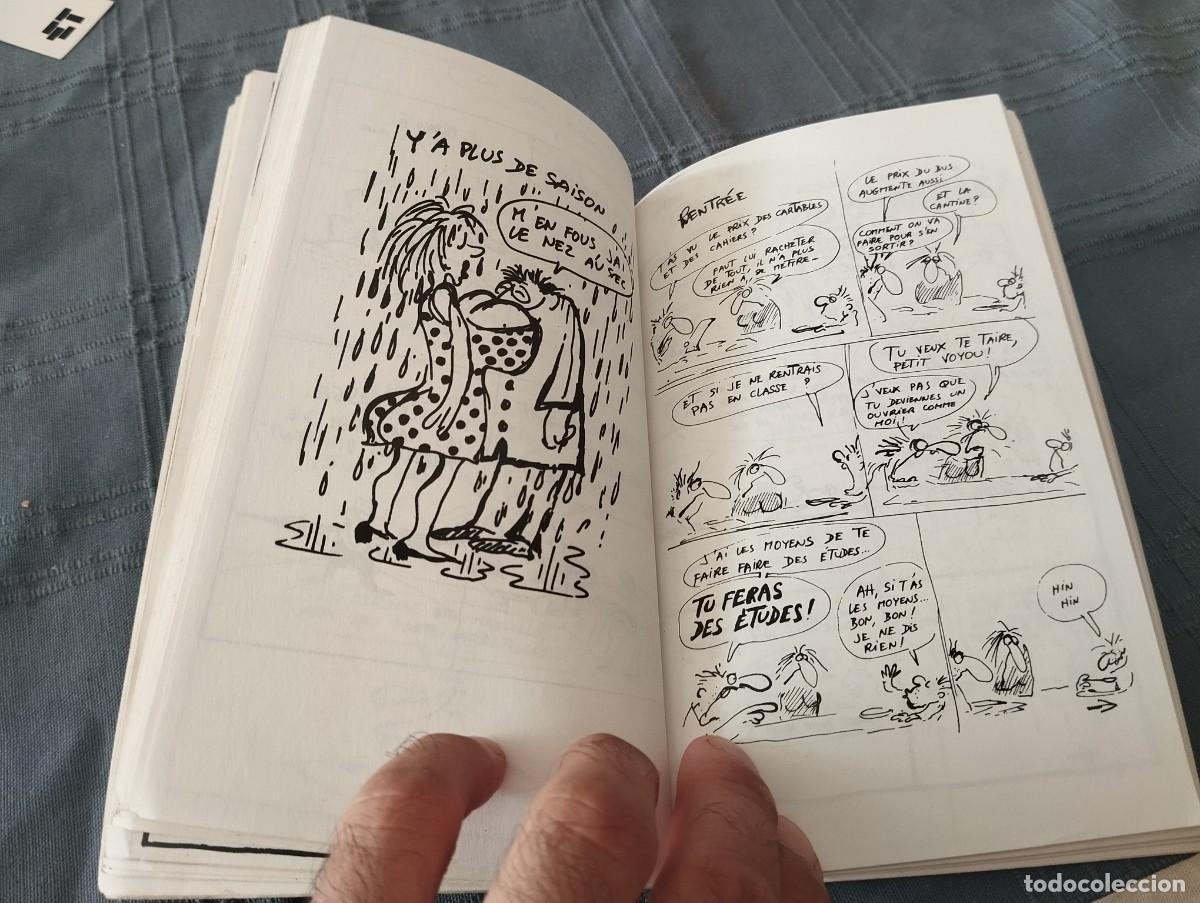 Y'A PLUS DE SAISON
M'EN FOUS, J'AI
LE NEZ AU SEC
RENTRÉE
T'AS VU LE PRIX DES CARTABLES
ET DES CAHIERS ?
FAUT LUI RACHETER
DE TOUT, IL N'A PLUS
RIEN A SE METTRE_
LE PRIX DU BUS
AUGMENTE AUSSI
ET LA
CANTINE ?
COMMENT ON VA
FAIRE POUR S'EN
SORTIR ?
ET SI JE NE RENTRAIS
PAS EN CLASSE ?
TU VEUX TE TAIRE,
PETIT VOYOU !
J'VEUX PAS QUE
TU DEVIENNES UN
OUVRIER COMME
MOI !
J'AI LES MOYENS DE TE
FAIRE FAIRE DES ÉTUDES...
TU FERAS
DES ÉTUDES !
AH, SI T'AS
LES MOYENS...
BON, BON !
JE NE DIS
RIEN !
HIN
HIN
todocoleccion